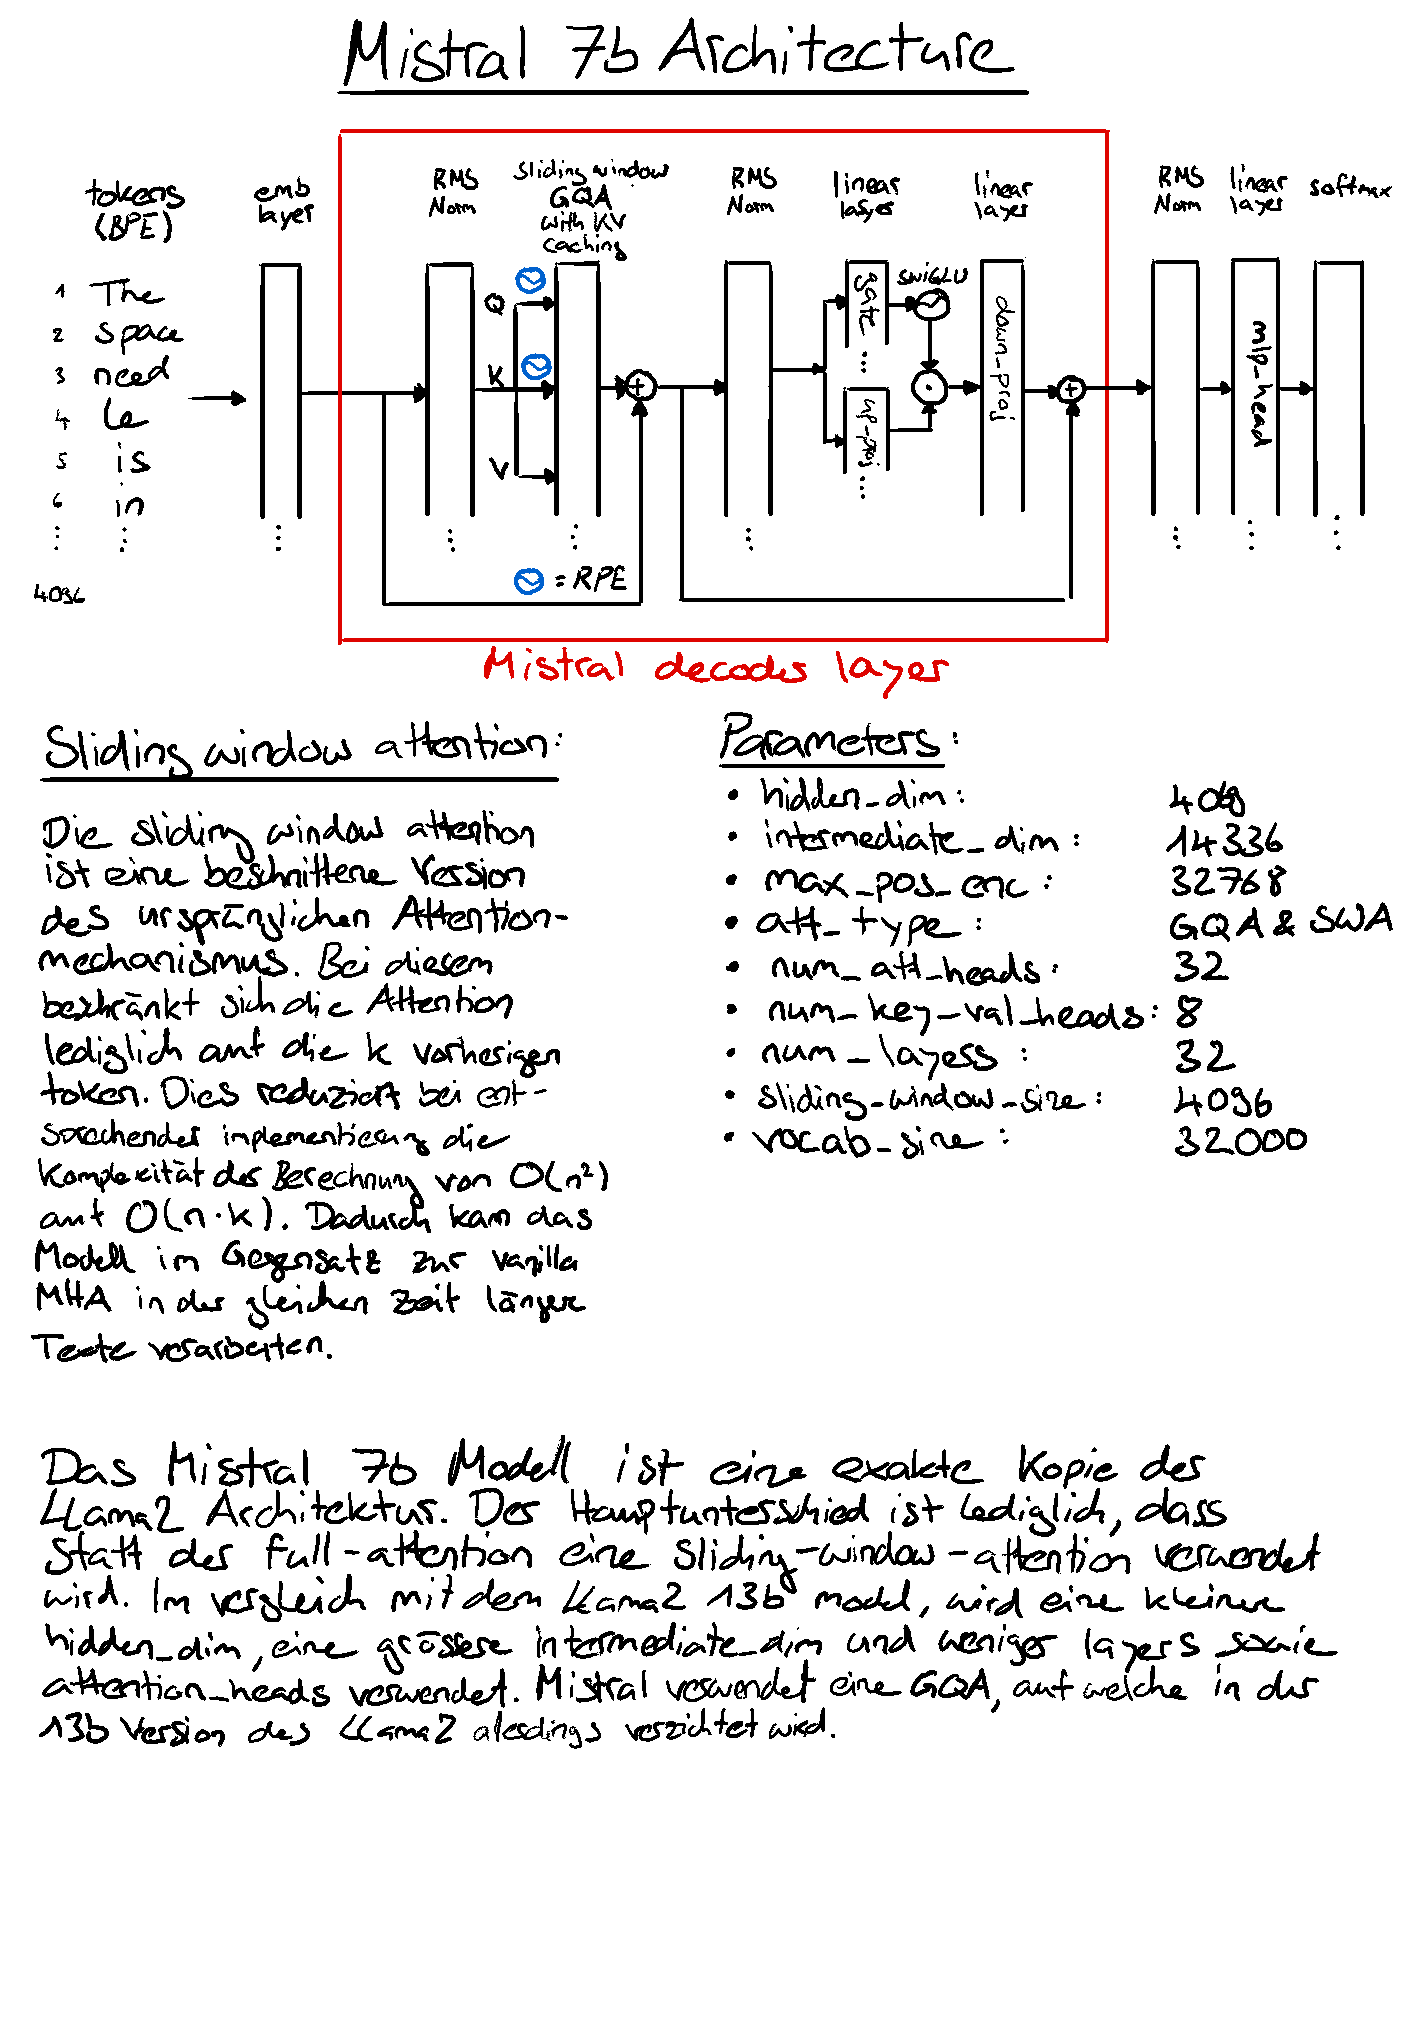 Mistral 7b Architecture
tokens
(BPE)
1 The
2 space
3 need
4 le
5 is
6 in
4096
emb
layer
RMS
Norm
Sliding window
GQA
with KV
caching
Q
K
V
= RPE
RMS
Norm
linear
layer
gate
up-proj
SwiGLU
linear
layer
down_proj
RMS
Norm
linear
layer
mlp_head
softmax
Mistral decoder layer
Sliding window attention:
Die sliding window attention
ist eine beschnittene Version
des ursprünglichen Attention-
mechanismus. Bei diesem
beschränkt sich die Attention
lediglich auf die k vorherigen
token. Dies reduziert bei ent-
sprechender implementierung die
Komplexität der Berechnung von O(n²)
auf O(n·k). Dadurch kann das
Modell im Gegensatz zur vanilla
MHA in der gleichen Zeit längere
Texte verarbeiten.
Parameters:
• hidden_dim:
• intermediate_dim: 14336
• max_pos_enc: 32768
• att_type: GQA & SWA
• num_att_heads: 32
• num_key_val_heads: 8
• num_layers: 32
• sliding_window_size: 4096
• vocab_size: 32000
Das Mistral 7b Modell ist eine exakte Kopie der
LLama2 Architektur. Der Hauptunterschied ist lediglich, dass
statt der full-attention eine sliding-window-attention verwendet
wird. Im vergleich mit dem LLama2 13b model, wird eine kleinere
hidden_dim, eine grössere intermediate_dim und weniger layers sowie
attention_heads verwendet. Mistral verwendet eine GQA, auf welche in der
13b Version des LLama2 alerdings verzichtet wird.